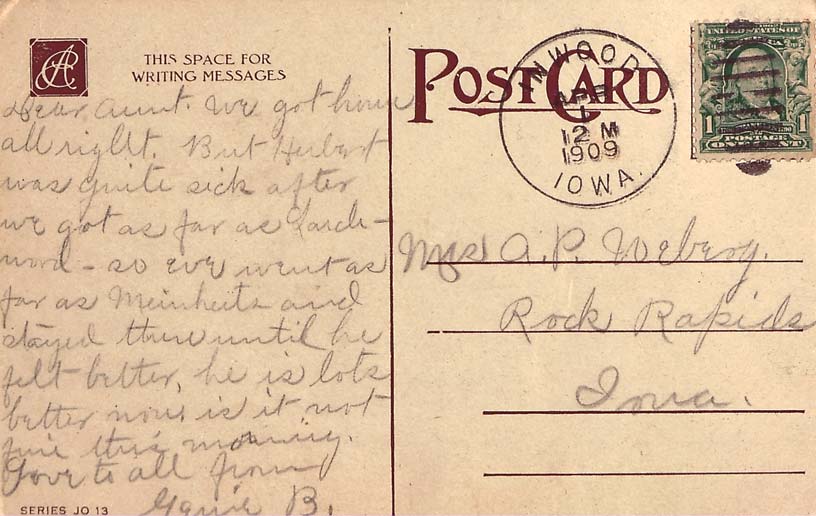 THIS SPACE FOR
WRITING MESSAGES
Dear Aunt. We got home
all right. But Herbert
was quite sick after
we got as far as Larch-
wood - so we went as
far as Meinheits and
stayed there until he
felt better, he is lots
better now. is it not
fine this morning.
Love to all from
B.
SERIES JO 13
POST CARD
INWOOD
APR
1
12 M
1909
IOWA.
UNITED STATES OF
1 1
POSTAGE
ONE CENT
Mrs A. P. Weberg.
Rock Rapids
Iowa.